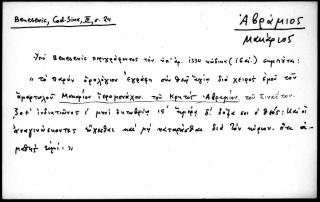 Benesenic, Cod-Sina, III, σ. 24
Ἀβράμιος
Μακάριος
Ὑπὸ Benesenic περιγράφεται τὸν ὑπ' ἀρ. 1334 κώδικα (16 αἰ.) σημειοῦται:
" τὸ παρὸν ὡρολόγιον ἐγράφη σὺν Θεῷ ἁγίῳ διὰ χειρὸς ἐμοῦ τοῦ
ἁμαρτωλοῦ Μακαρίου ἱερομονάχου τοῦ Κρητὸς Ἀβραμίου τοῦ Σιναΐτου.
ἰνδικτιῶνος μηνὶ ὀκτωβρίῳ 15 ἡμέρᾳ δόξα σοι ὁ Θεός; Καὶ οἱ
ἀναγινώσκοντες εὔχεσθαι καὶ μὴ καταρᾶσθαι διὰ τὸν κύριον. ὅτι ἀ-
μαθὴς εἰμί: "